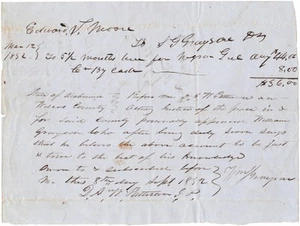 Edward T. Moore
To S G Grayson Dr
Mar 12
1852. To 5½ months hire for Negro Girl Aug 44,00
Cr By cash 8.00
$36.00
State of Alabama Before me D A W
County acting Justice of the peace in &
for Said County personally appeared William
Grayson who after being duly sworn says
that he believes the above account to be just
& true to the best of his Knowledge
Sworn to & subscribed before
me this 8th day Sept 1852 Wm Grayson
D. A. W. J. P.